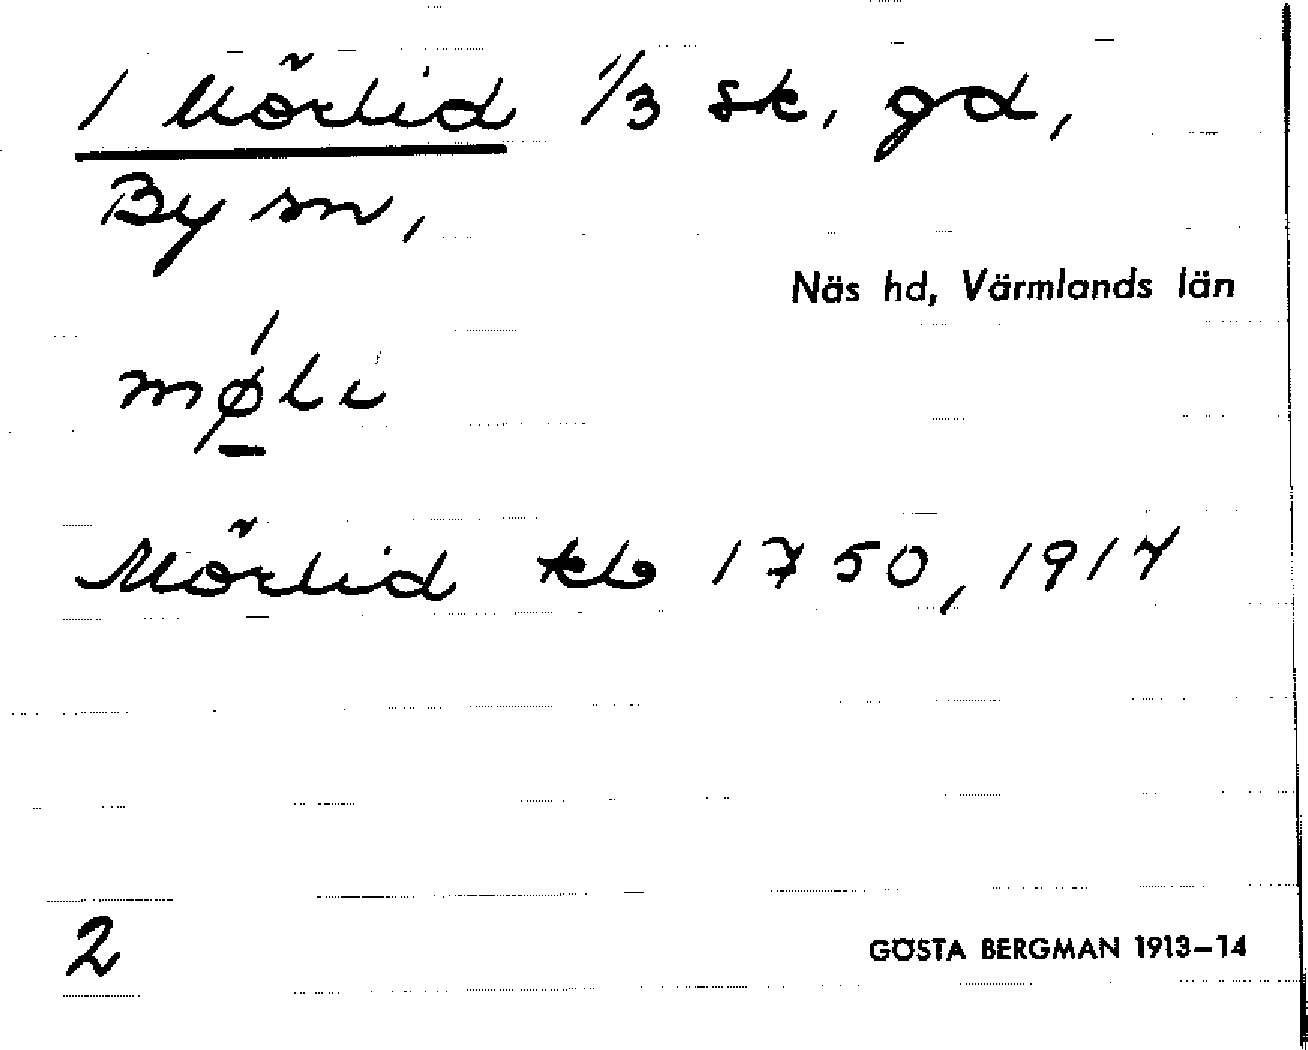 1 Mörlid 1/3 sk, gd,
By sn,
Näs hd, Värmlands län
mø̱li
Mörlid kb 1750, 1917
2
GÖSTA BERGMAN 1913–14